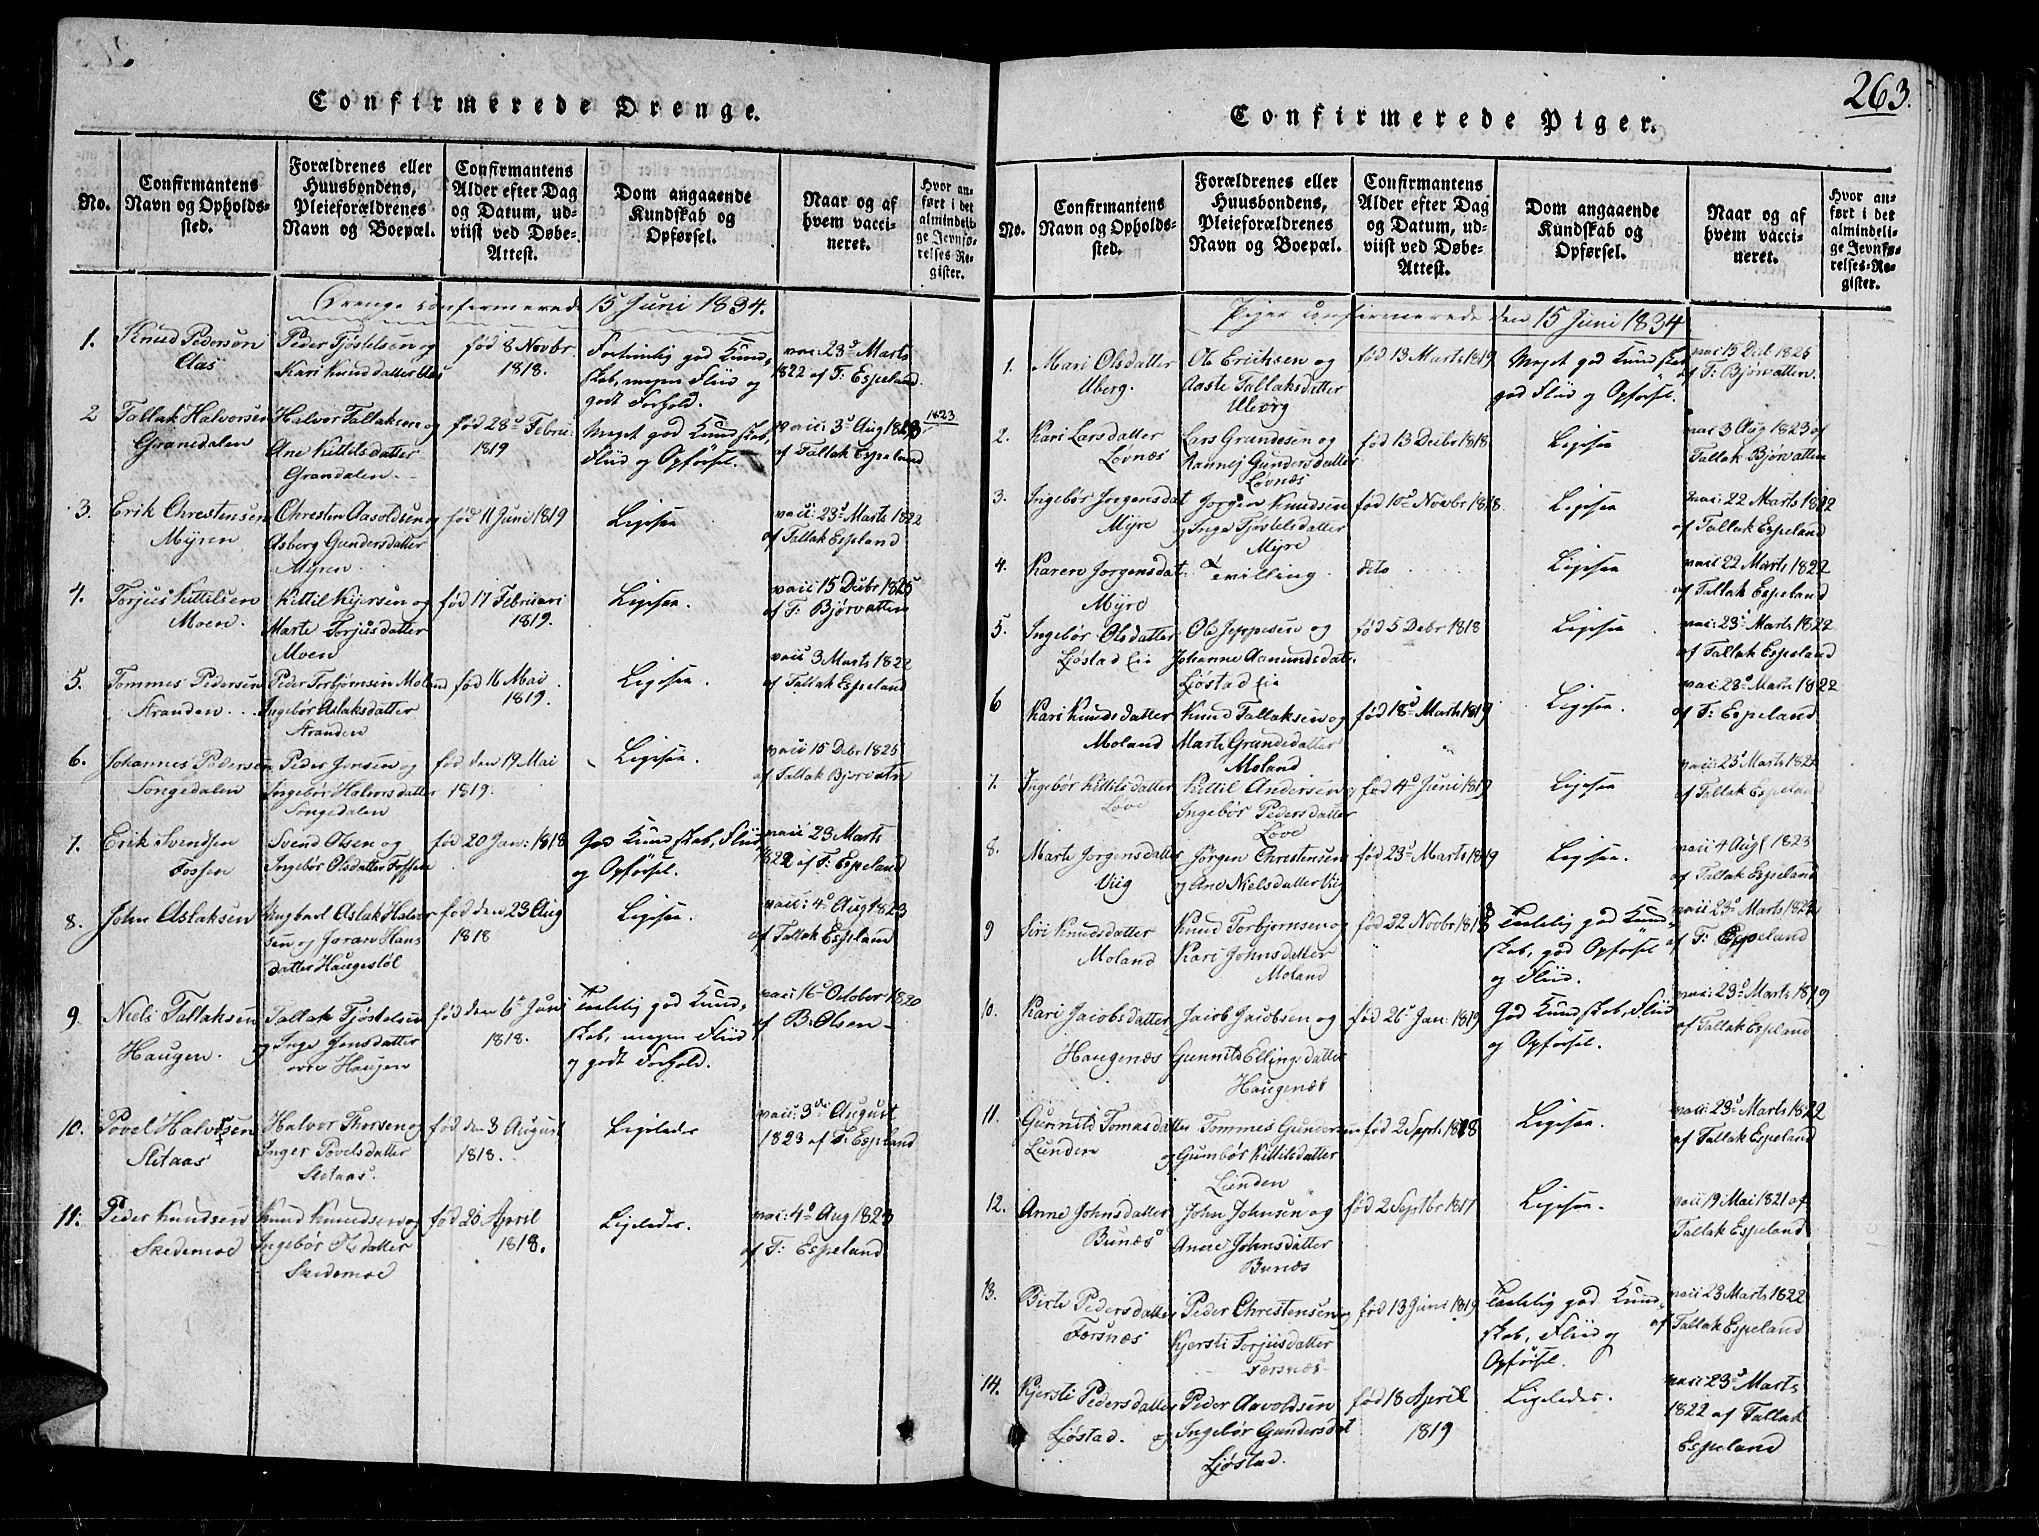 Confirmerede Drenge.
No.
Confirmantens
Navn og Opholds-
sted.
Forældrenes eller
Huusbondens,
Pleieforældrenes
Navn og Boepæl.
Confirmantens
Alder efter Dag
og Datum, ud-
viist ved Døbe-
Attest.
Dom angaaende
Kundskab og
Opførsel.
Naar og af
hvem vacci-
neret.
Hvor an-
ført i det
almindeli-
ge Jevnfø-
relses-Re-
gister.
Drenge confirmerede 15 Juni 1834.
1. Knud Pedersøn
Aas
Peder Tjöstelsen og
Kari Knudsdatter Aas
fød 8 Novbr
1818.
Fortrinlig god Kund-
skab, megen Fliid og
godt Forhold.
vacc: 23d Marts
1822 af T: Espeland.
2 Tallak Halvorsen
Granedalen
Halvor Tallaksen og
Ane Kittilsdatter
Granedalen.
fød 28d Febru:
1819
Meget god Kundskab,
Fliid og Opførsel.
vacc: 3d Aug 1823
af Tallak Espeland
1823
3. Erik Chrestensen
Myren
Chresten Aasoldsen og
Asberg Gundersdatter
Myren.
fød 11 Juni 1819
Ligesaa
vacc: 23d Marts 1822
af Tallak Espeland
4. Torjus Kittilsen
Moen.
Kittil Kjersen og
Marte Torjusdatter
Moen
fød 17 Februari
1819.
Ligesaa
vacc 15 Debr 1825
af T: Bjørvatten
5. Tommes Pedersen
Stranden
Peder Torbjørnsen Moland
Ingebør Aslaksdatter
Stranden
fød 16 Mai
1819.
Ligesaa.
vacc 3 Marts 1822
af Tallak Espeland
6. Johannes Pedersen
Songedalen
Peder Jensen og
Ingebør Halvorsdatter
Songedalen
fød den 19 Mai
1819.
Ligesaa.
vacc 15 Debr 1825
af Tallak Bjorvatn
7. Erik Svendsen
Fossen
Svend Olsen og
Ingebør Olsdatter Fossen
fød 20 Jan: 1818
God Kundskab, Fliid
og Opførsel.
vacc 23 Marts
1822 af T: Espeland
8. John Aslaksen
Ungkarl Aslak Halvor
sen og Joran Hans
datter Haugesløl
fød den 23 Aug
1818
Ligesaa.
vacc: 4d Aug 1823
af Tallak Espeland
9. Niels Tallaksen
Haugen.
Tallak Tjøstelsen
og Inge Jensdatter
øvre Haugen
fød den 6d Juni
1818.
Taalelig god Kund-
skab, megen Fliid
og godt Forhold.
vacc: 16 October 1820
af B. Olsen
10. Povel Halvorsen
Sletaas
Halvor Thorsen og
Inger Povelsdatter
Sletaas.
fød den 3 August
1818.
Ligeledes
vacc: 3die August
1823 af T: Espeland
11. Peder Knudsen
Skedemoe
Knud Knudsen og
Ingebør Olsdatter
Skedemoe
fød 26 April
1818.
Ligeledes.
vacc: 4d Aug 1823
af T: Espeland
263.
Confirmerede Piger.
No.
Confirmantens
Navn og Opholds-
sted.
Forældrenes eller
Huusbondens,
Pleieforældrenes
Navn og Boepæl.
Confirmantens
Alder efter Dag
og Datum, ud-
viist ved Døbe-
Attest.
Dom angaaende
Kundskab og
Opførsel.
Naar og af
hvem vacci-
neret.
Hvor an-
ført i det
almindeli-
ge Jevnfø-
relses-Re-
gister.
Piger confirmerede den 15 Juni 1834
1. Mari Olsdatter
Uberg.
Ole Erichsen og
Aaste Tallaksdatter
Uberg
fød 13 Marts 1819
Meget god Kundskab
god Fliid og Opførsel.
vac 15 Deb 1825
af T: Bjørvatten.
2. Kari Larsdatter
Løvnæs
Lars Grundesen og
Rannej Gundersdatter
Løvnæs
fød 13 Decbr 1818
Ligesaa
vac 3 Aug 1823 af
Tallak Bjørvatten
3. Ingebør Jorgensdat
Myre
Jorgen Knudsen
og Inge Tjøstelsdatter
Myre
fød 10d Novbr 1818
Ligesaa
vac: 22 Marts 1822
af Tallak Espeland
4. Karen Jorgensdat.
Myre
Tvilling.
dito
Ligesaa
vacc 22 Marts 1822
af Tallak Espeland
5. Ingebør Olsdatter
Ljøstad Eie
Ole Jeppesen og
Johanne Asmundsdat.
Ljøstad Eie
fød 5 Debr 1818
Ligesaa
vacc: 23d Marts 1822
af Tallak Espeland
6 Kari Knudsdatter
Moland
Knud Tallaksen og
Marte Grundesdatter
Moland
fød 18d Marts 1819
Ligesaa.
vacc 23d Marts 1822
af T: Espeland
7. Ingebør Kittilsdatter
Løve
Kittil Andersen
Ingebør Pedersdatter
Løve
fød 4d Juni 1819
Ligesaa
vacc 25 Marts 1822
af Tallak Espeland
8. Marte Jorgensdatter
Viig
Jørgen Chrestensen
og Ane Nielsdatter Viig
fød 23d Marts 1819
Ligesaa.
vacc 4 Aug 1823
af Tallak Espeland
9 Siri Knudsdatter
Moland
Knud Torbjornsen og
Kari Johnsdatter
Moland
fød 22 Novbr 1818
Taalelig god Kund-
skab, god Opførsel
og Fliid.
vacc 23d Marts 1822
af T: Espeland
10. Kari Jacobsdatter
Haugenæs
Jacob Jacobsen og
Gunnild Ellingsdatter
Haugenæs
fød 26d Jan: 1819
God Kundskab, Fliid
og Opførsel.
vac: 23d Marts 1819
af Tallak Espeland
11. Gunnild Tomasdatter
Lunden
Tommes Gundersen
og Gunbør Kittilsdatter
Lunden
fød 2 Septr. 1818
Ligesaa.
vacc: 23d Marts 1822
af Tallak Espeland
12. Anne Johnsdatter
Bunæs
John Johnsen og
Anne Johnsdatter
Bunæs
fød 2 Septbr 1817
Ligesaa.
vacc 19 Mai 1821 af
Tallak Espeland
13. Birte Pedersdatter
Færsnæs
Peder Chrestensen og
Kjersti Torjusdatter
Færsnæs
fød 13 Juni 1819
Taalelig god Kund-
skab, Fliid og
Opførsel.
vacc 23 Marts 1822
af Tallak Espeland
14. Kjersti Pedersdatter
Ljøstad.
Peder Aavoldsen
og Ingebør Gundersdat
Ljøstad.
fød 18 April
1819
Ligeledes.
vacc 23d Marts
1822 af Tallak
Espeland